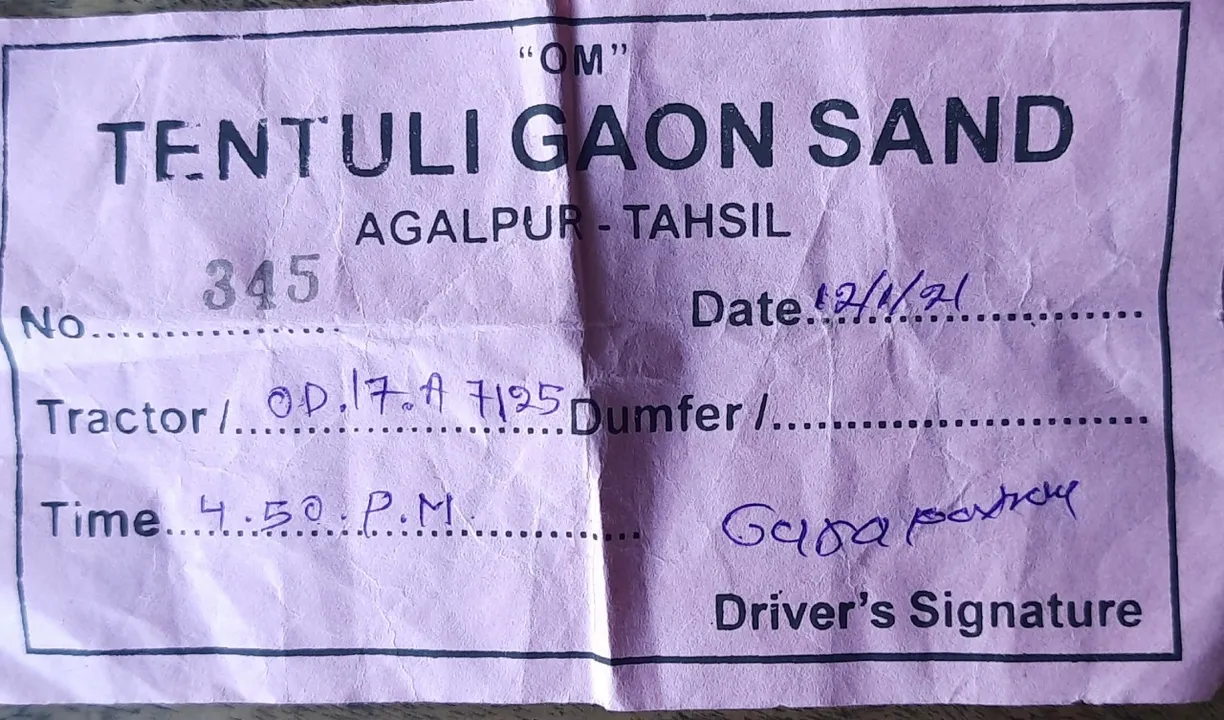 “OM”
TENTULI GAON SAND
AGALPUR - TAHSIL
No.................. 345 Date..12/1/21..................
Tractor /..OD.17.A 7125..Dumfer /..................
Time...4.50.P.M..................
Driver’s Signature